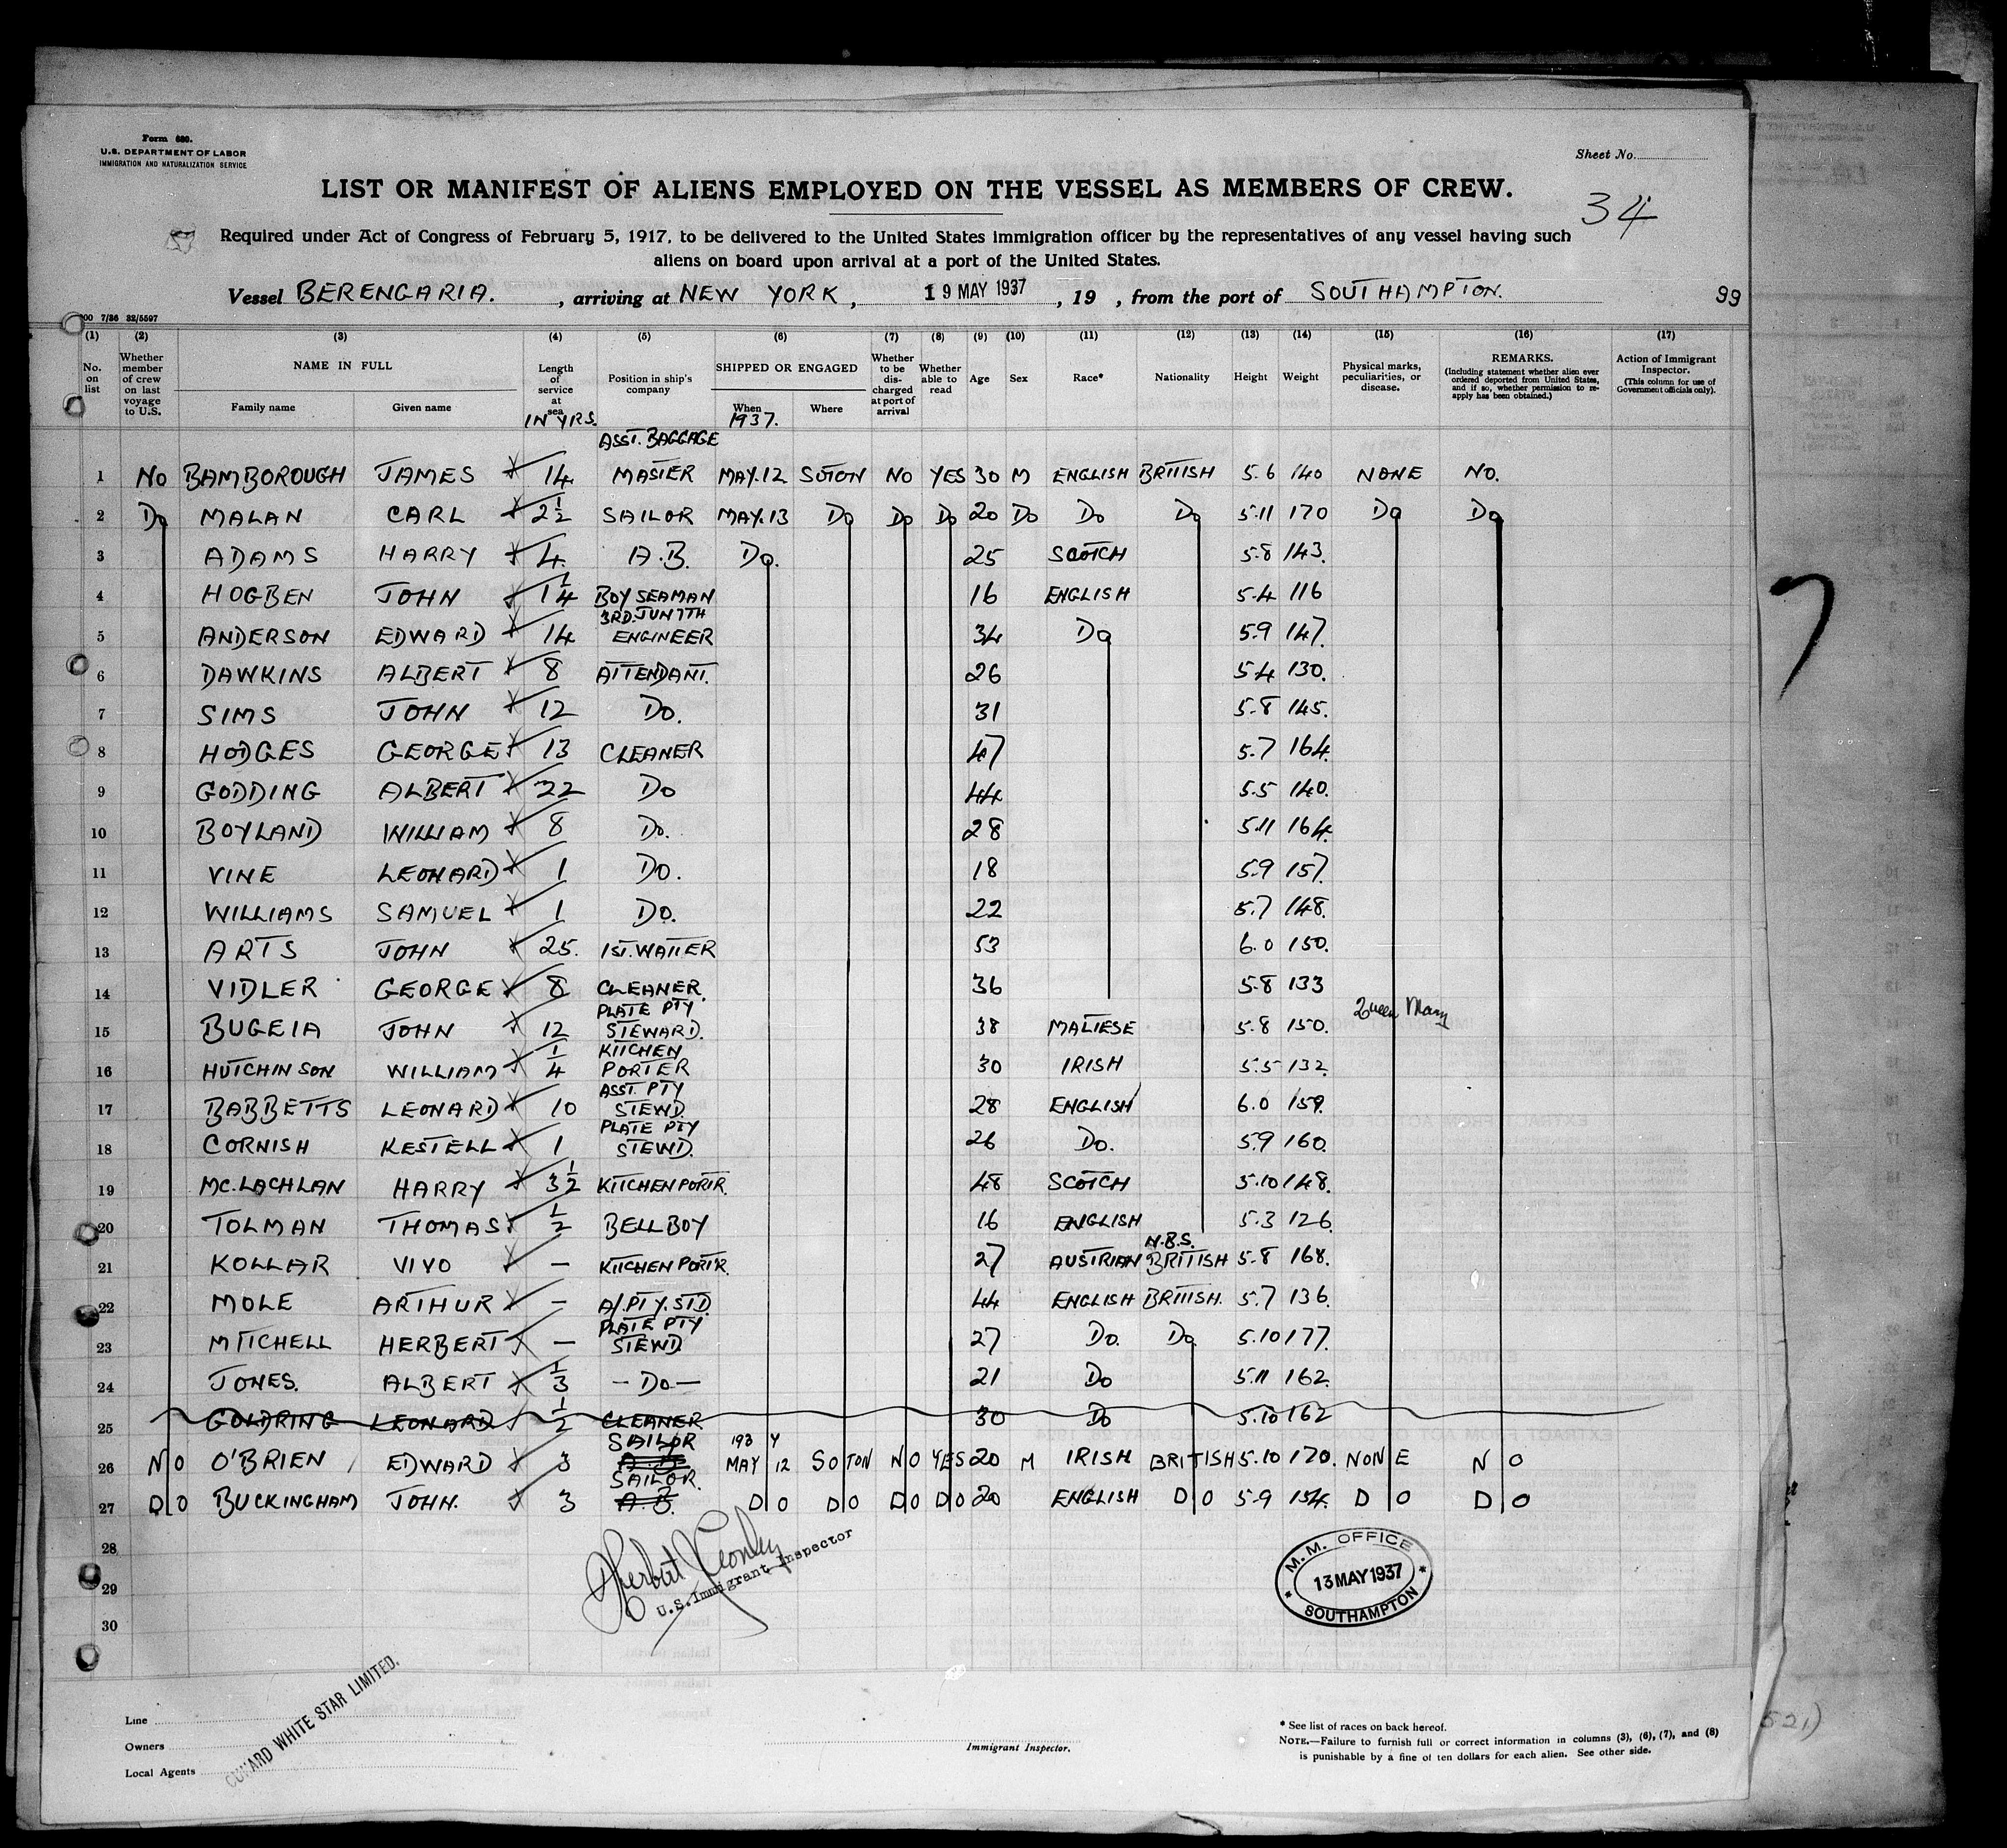 Form 680.
U.S. DEPARTMENT OF LABOR
IMMIGRATION AND NATURALIZATION SERVICE
Sheet No.
LIST OR MANIFEST OF ALIENS EMPLOYED ON THE VESSEL AS MEMBERS OF CREW.
34
Required under Act of Congress of February 5, 1917, to be delivered to the United States immigration officer by the representatives of any vessel having such
aliens on board upon arrival at a port of the United States.
Vessel BERENGARIA. , arriving at NEW YORK , 19 MAY 1937 , 19 , from the port of SOUTHAMPTON.
99
7/36 32/5597
(1) (2) (3) (4) (5) (6) (7) (8) (9) (10) (11) (12) (13) (14) (15) (16) (17)
No. on list
Whether member of crew on last voyage to U.S.
NAME IN FULL
Family name Given name
Length of service at sea
IN YRS.
Position in ship's company
SHIPPED OR ENGAGED
When Where
1937.
Whether to be discharged at port of arrival
Whether able to read
Age
Sex
Race*
Nationality
Height
Weight
Physical marks, peculiarities, or disease.
REMARKS.
(Including statement whether alien ever ordered deported from United States, and if so, whether permission to reapply has been obtained.)
Action of Immigrant Inspector.
(This column for use of Government officials only).
ASST. BAGGAGE
1 NO BAMBOROUGH JAMES 14 MASTER MAY.12 SOTON NO YES 30 M ENGLISH BRITISH 5.6 140 NONE NO.
2 Do MALAN CARL 2½ SAILOR MAY.13 Do Do Do 20 Do Do Do 5.11 170 Do Do
3 ADAMS HARRY 4. A.B. Do. 25 SCOTCH 5.8 143.
4 HOGBEN JOHN 1¼ BOY SEAMAN 16 ENGLISH 5.4 116
3RD. JUN 7TH
5 ANDERSON EDWARD 14 ENGINEER 34 Do 5.9 147.
6 DAWKINS ALBERT 8 ATTENDANT. 26 5.4 130.
7 SIMS JOHN 12 DO. 31 5.8 145.
8 HODGES GEORGE 13 CLEANER 47 5.7 164.
9 GODDING ALBERT 22 DO 44 5.5 140.
10 BOYLAND WILLIAM 8 DO. 28 5.11 164.
11 VINE LEONARD 1 DO. 18 5.9 157.
12 WILLIAMS SAMUEL 1 DO. 22 5.7 148.
13 ARTS JOHN 25. 1ST. WAITER 53 6.0 150.
14 VIDLER GEORGE 8 CLEANER. 36 5.8 133
PLATE PTY Queen Mary
15 BUGEIA JOHN 12 STEWARD. 38 MALTESE 5.8 150.
KITCHEN
16 HUTCHINSON WILLIAM ¼ PORTER 30 IRISH 5.5 132.
ASST. PTY
17 BABBETTS LEONARD 10 STEWD. 28 ENGLISH 6.0 159.
PLATE PTY
18 CORNISH KESTELL 1 STEWD. 26 Do. 5.9 160.
19 MC.LACHLAN HARRY 3½ KITCHEN PORTR. 48 SCOTCH 5.10 148.
20 TOLMAN THOMAS. ½ BELL BOY 16 ENGLISH 5.3 126.
N.B.S.
21 KOLLAR VIVO — KITCHEN PORTR. 27 AUSTRIAN BRITISH 5.8 168.
22 MOLE ARTHUR — A/.PTY.STD. 44 ENGLISH BRITISH. 5.7 136.
PLATE PTY
23 MITCHELL HERBERT — STEWD. 27 Do. Do. 5.10 177.
24 JONES. ALBERT ⅓ — Do — 21 Do 5.11 162.
25 GOLDRING LEONARD ½ CLEANER 30 Do 5.10 162
SAILOR 193 Y
26 NO O'BRIEN EDWARD 3 A B MAY 12 SOTON NO YES 20 M IRISH BRITISH 5.10 170. NONE NO
SAILOR.
27 DO BUCKINGHAM JOHN. 3 A.B. DO DO DO DO 20 ENGLISH DO 5.9 154. DO DO
28
29
30
U.S. Immigrant Inspector
M.M. OFFICE
13 MAY 1937
SOUTHAMPTON
Line
Owners
Local Agents
CUNARD WHITE STAR LIMITED.
Immigrant Inspector.
* See list of races on back hereof.
NOTE.—Failure to furnish full or correct information in columns (3), (6), (7), and (8)
is punishable by a fine of ten dollars for each alien. See other side.
7
521)